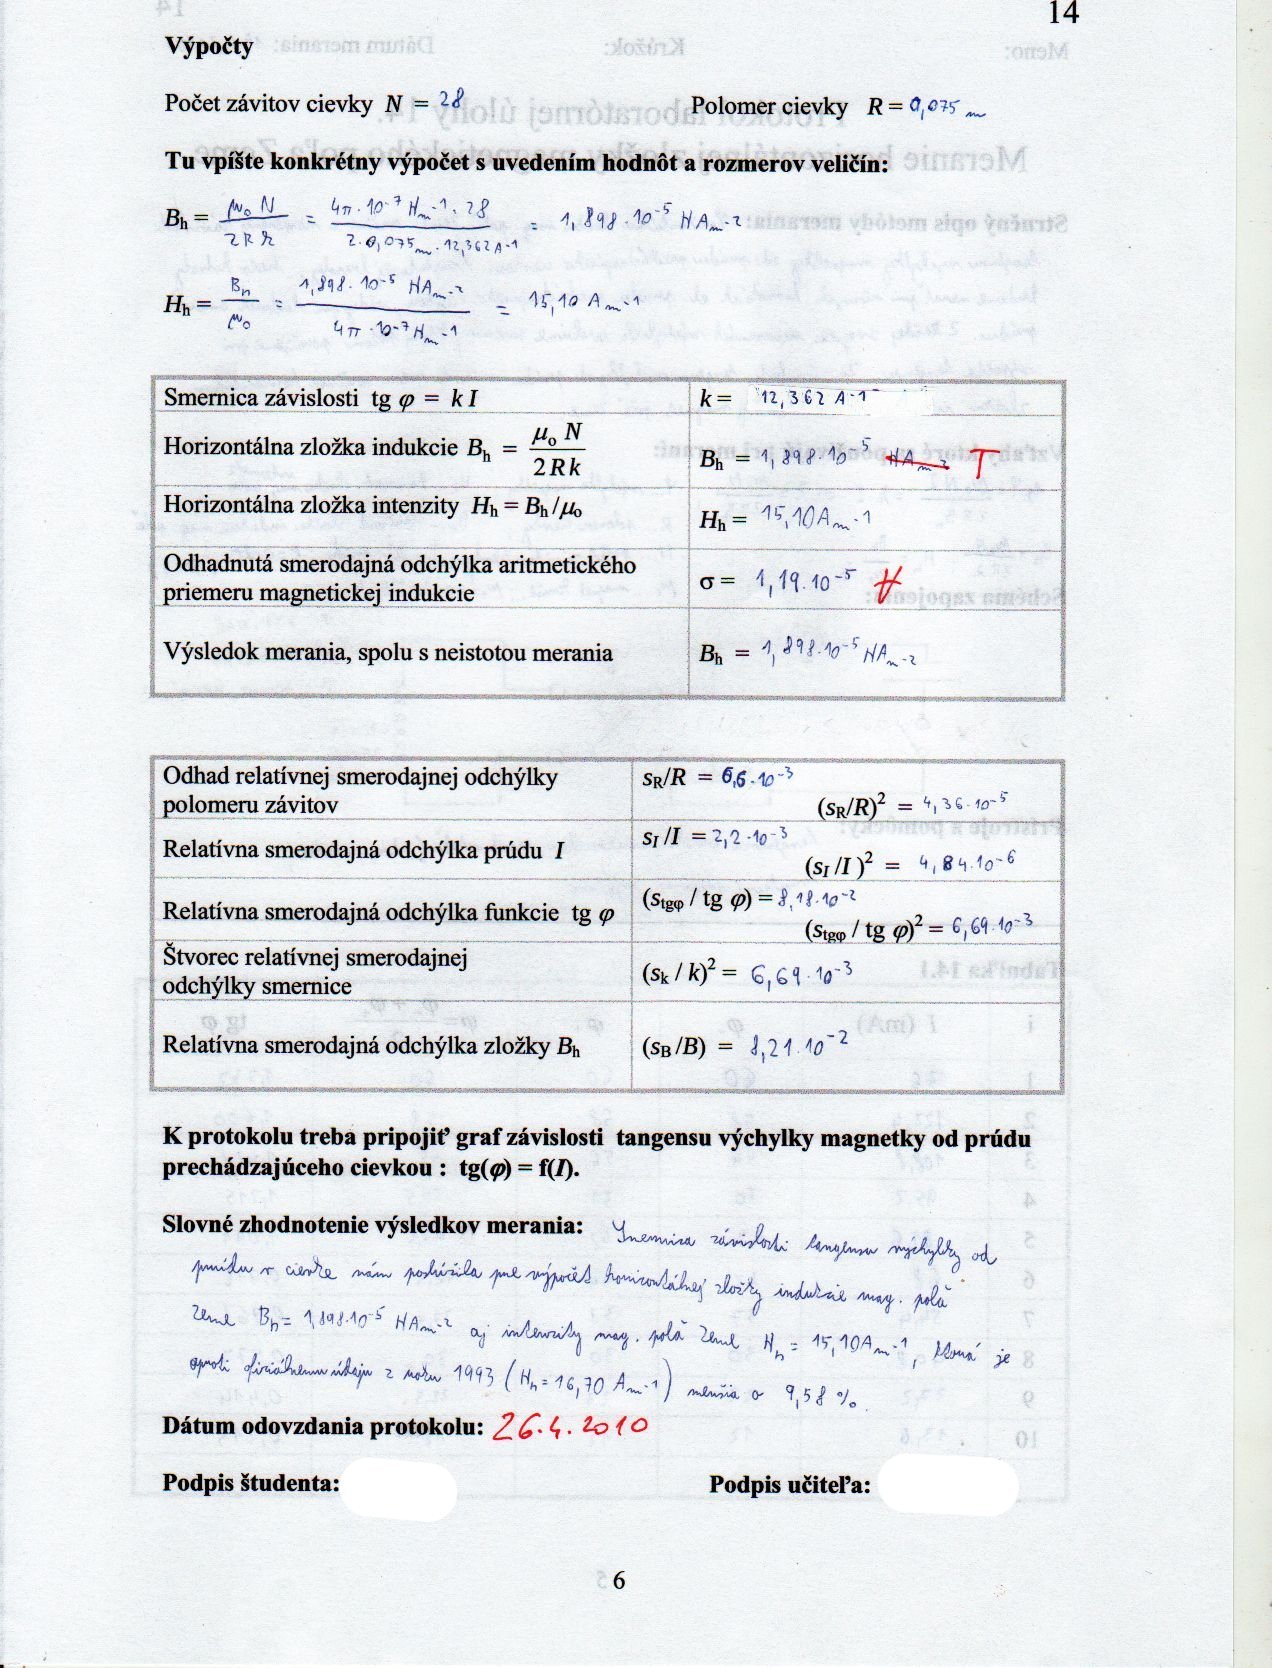 14
Výpočty
Počet závitov cievky N = 28 Polomer cievky R = 0,075 m
Tu vpíšte konkrétny výpočet s uvedením hodnôt a rozmerov veličín:
Bh = μ0 N / 2 R k = 4π · 10⁻⁷ Hm⁻¹ · 28 / 2 · 0,075 m · 12,362 A⁻¹ = 1,898 · 10⁻⁵ HAm⁻²
Hh = Bh / μ0 = 1,898 · 10⁻⁵ HAm⁻² / 4π · 10⁻⁷ Hm⁻¹ = 15,10 Am⁻¹
Smernica závislosti tg φ = k I k = 12,362 A⁻¹
Horizontálna zložka indukcie Bh = μo N / 2Rk Bh = 1,898 · 10⁻⁵ HAm⁻² T
Horizontálna zložka intenzity Hh = Bh /μo Hh = 15,10 Am⁻¹
Odhadnutá smerodajná odchýlka aritmetického
priemeru magnetickej indukcie σ = 1,19 · 10⁻⁵
Výsledok merania, spolu s neistotou merania Bh = 1,898 · 10⁻⁵ HAm⁻²
Odhad relatívnej smerodajnej odchýlky sR/R = 6,6 · 10⁻³
polomeru závitov (sR/R)² = 4,36 · 10⁻⁵
Relatívna smerodajná odchýlka prúdu I sI /I = 2,2 · 10⁻³
(sI /I )² = 4,84 · 10⁻⁶
Relatívna smerodajná odchýlka funkcie tg φ (stgφ / tg φ) = 8,18 · 10⁻²
(stgφ / tg φ)² = 6,69 · 10⁻³
Štvorec relatívnej smerodajnej
odchýlky smernice (sk / k)² = 6,69 · 10⁻³
Relatívna smerodajná odchýlka zložky Bh (sB /B) = 8,21 · 10⁻²
K protokolu treba pripojiť graf závislosti tangensu výchylky magnetky od prúdu
prechádzajúceho cievkou : tg(φ) = f(I).
Slovné zhodnotenie výsledkov merania: Smernica závislosti tangensu výchylky od
prúdu v cievke nám poslúžila pre výpočet horizontálnej zložky indukcie mag. poľa
Zeme Bh = 1,898 · 10⁻⁵ HAm⁻² aj intenzity mag. poľa Zeme Hh = 15,10 Am⁻¹, ktorá je
oproti oficiálnemu údaju z roku 1993 (Hh = 16,70 Am⁻¹) menšia o 9,58 %.
Dátum odovzdania protokolu: 26.4.2010
Podpis študenta: Podpis učiteľa:
6